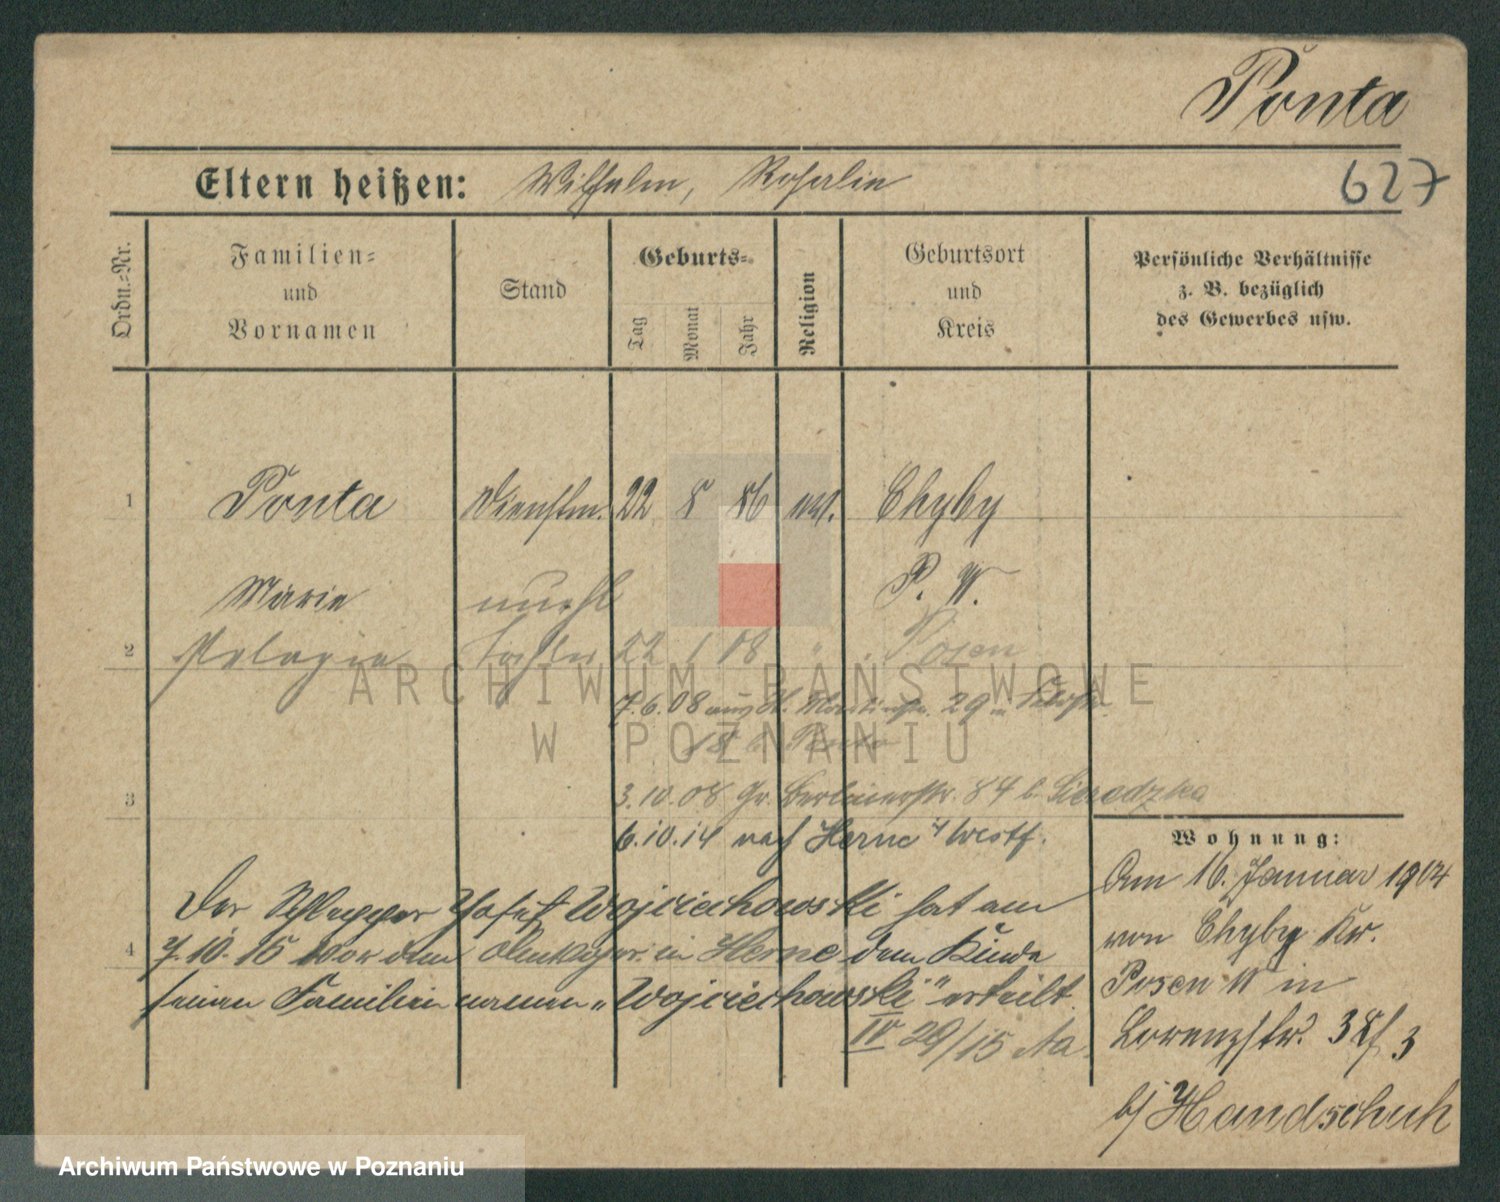 Ponta
Eltern heißen: Wilhelm, Rosalie
627
Ordn.-Nr.
Familien-
und
Vornamen
Stand
Geburts-
Tag
Monat
Jahr
Religion
Geburtsort
und
Kreis
Persönliche Verhältnisse
z. B. bezüglich
des Gewerbes usw.
1 Ponta Dienstm. 22 8 86 Chyby
Marie P. W.
2 Pelagia Tochter 22 1 08 " Posen
7.6.08 29
18
3
3.10.08 Gr. Berlinerstr. 84 b. Sieradzka
6.10.14 nach Herne i/ Westf.
Der Schlepper Josef Wojciechowski hat am
4 7.10.15 vor dem in Herne dem Kinde
seinen Familiennamen „Wojciechowski" erteilt.
IV 29/15
Wohnung:
Am 16. Januar 1904
von Chyby Kr.
Posen W in
Lorenzstr. 3
b/ Handschuh
ARCHIWUM PAŃSTWOWE
W POZNANIU
Archiwum Państwowe w Poznaniu